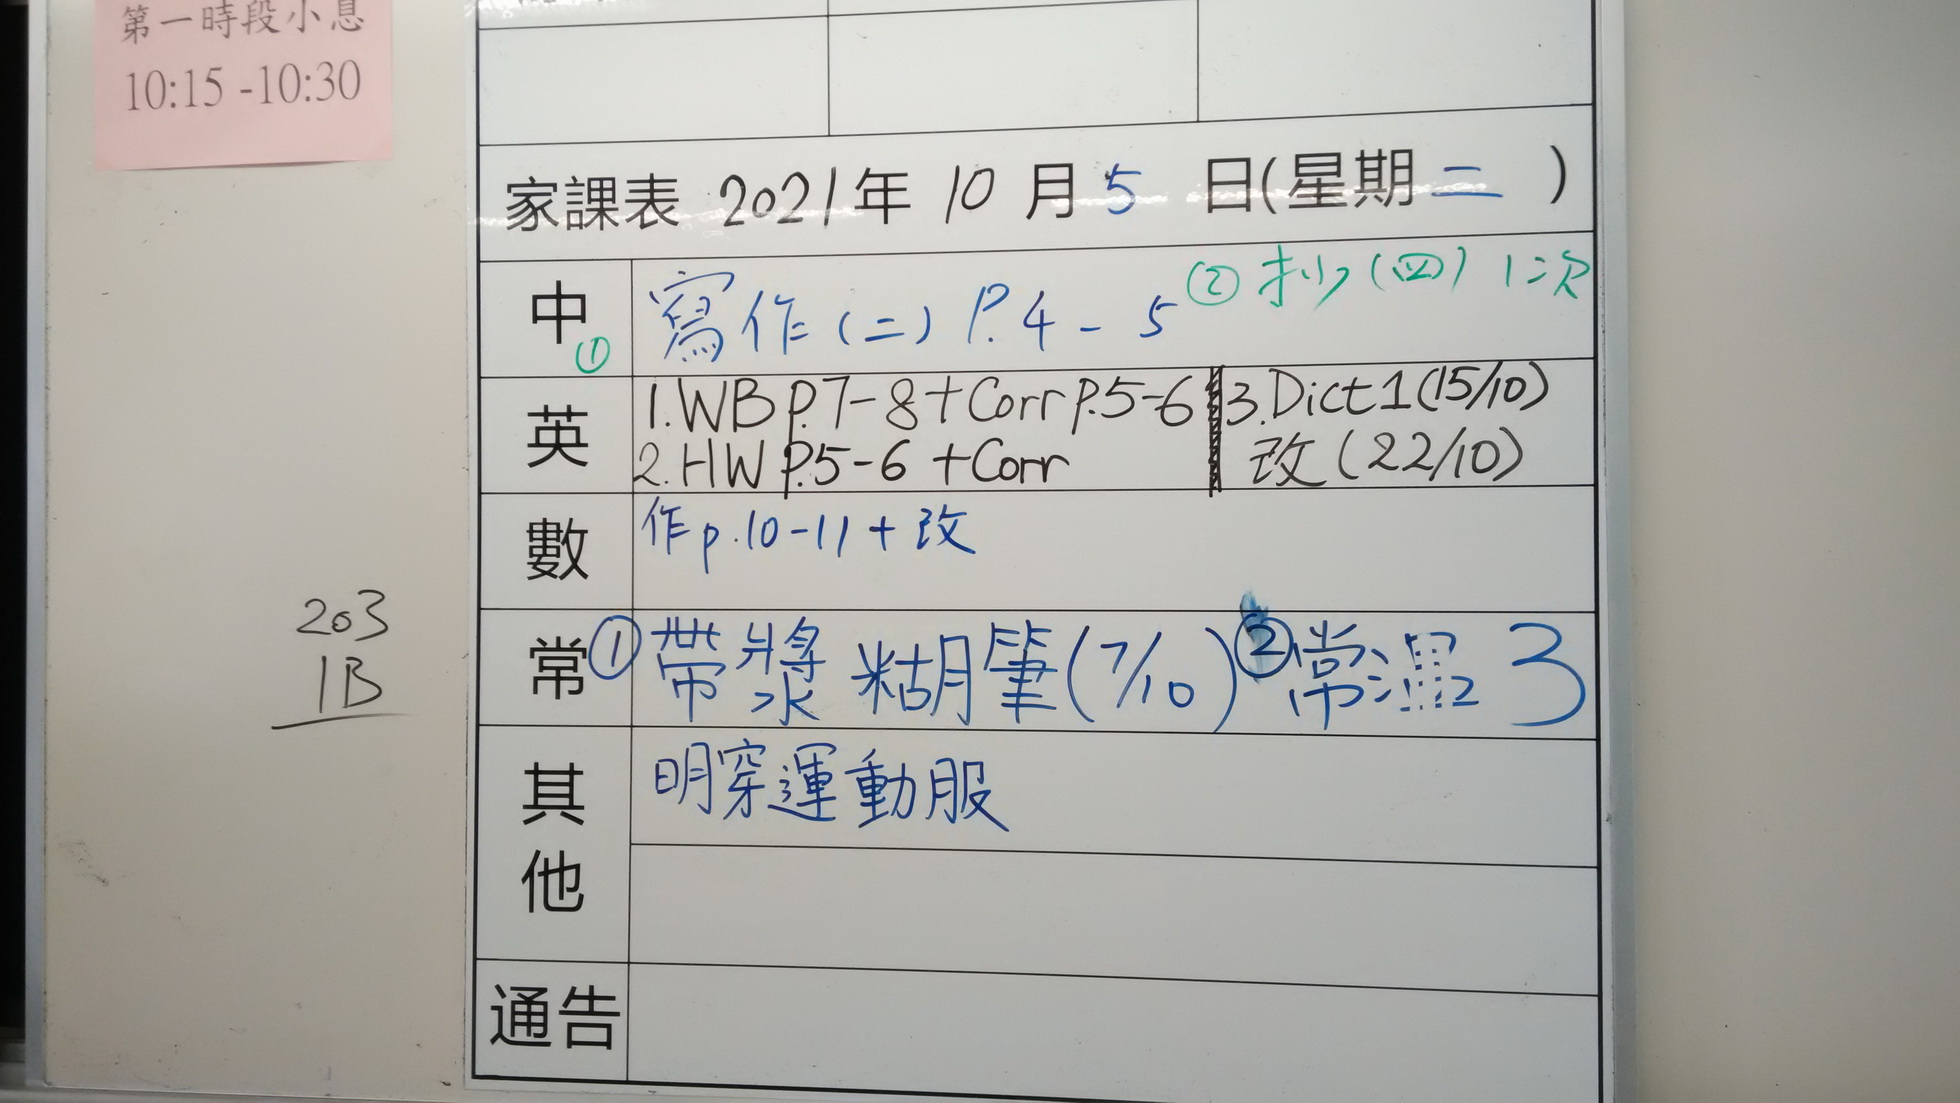 第一時段小息
10:15 -10:30
家課表 2021年 10 月 5 日(星期二)
中 ① 寫作(二) P.4 - 5 ② 抄(四) 1次
英 1.WB p.7-8 + Corr p.5-6 3.Dict 1 (15/10)
2.HW p.5-6 + Corr 改 (22/10)
數 作 p.10-11 + 改
常 ① 帶漿糊筆(7/10) ② 常温 3
其他 明穿運動服
通告
203
1B